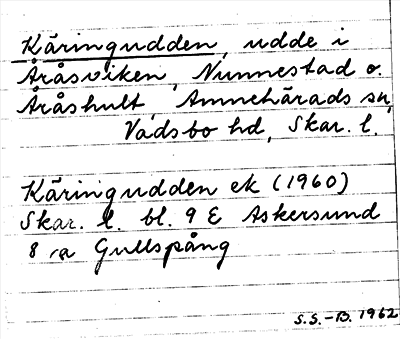 Käringudden, udde i
Åråsviken, Nunnestad o.
Åråshult, Amnehärads sn,
Vadsbo hd, Skar. l.
Käringudden ek (1960)
Skar. l. bl. 9 E Askersund
8 a Gullspång
S.S.-B. 1962